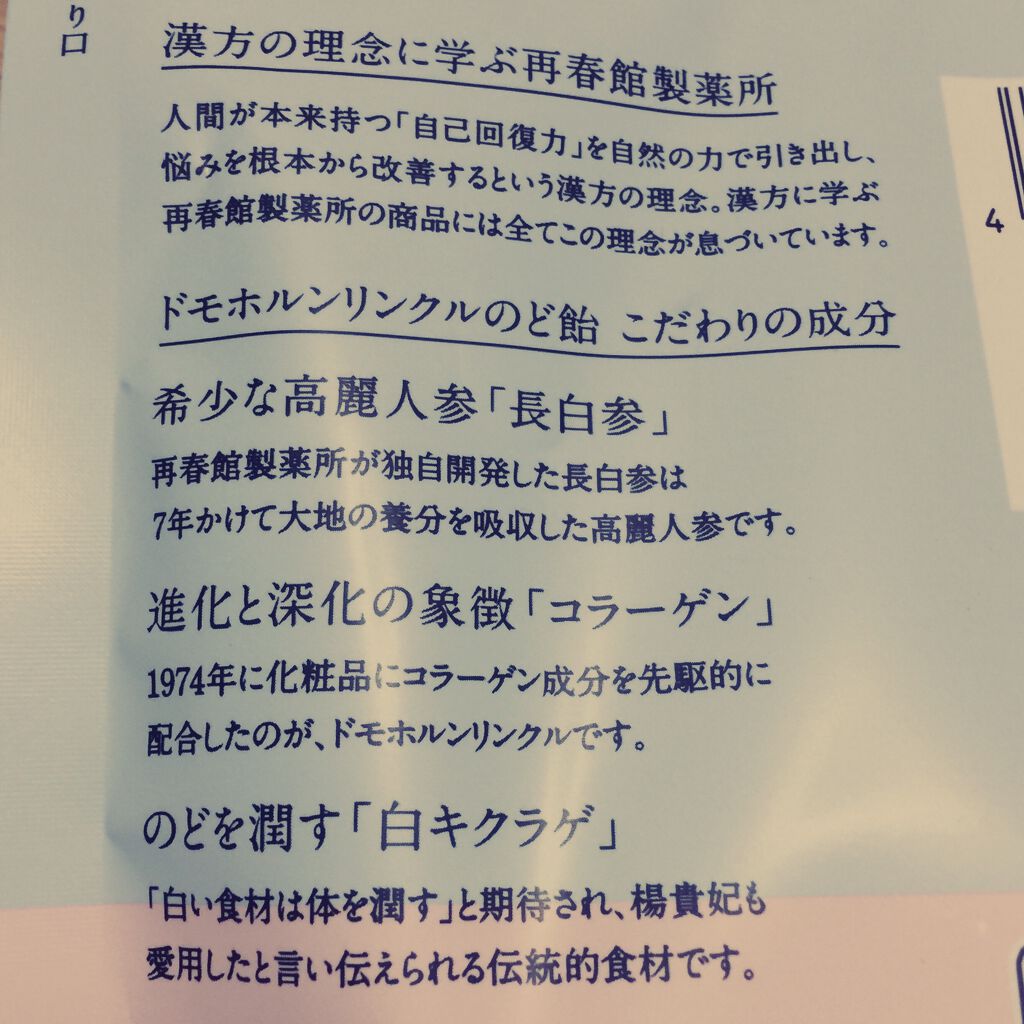 り口
漢方の理念に学ぶ再春館製薬所
人間が本来持つ「自己回復力」を自然の力で引き出し、
悩みを根本から改善するという漢方の理念。漢方に学ぶ
再春館製薬所の商品には全てこの理念が息づいています。
ドモホルンリンクルのど飴 こだわりの成分
希少な高麗人参「長白参」
再春館製薬所が独自開発した長白参は
7年かけて大地の養分を吸収した高麗人参です。
進化と深化の象徴「コラーゲン」
1974年に化粧品にコラーゲン成分を先駆的に
配合したのが、ドモホルンリンクルです。
のどを潤す「白キクラゲ」
「白い食材は体を潤す」と期待され、楊貴妃も
愛用したと言い伝えられる伝統的食材です。
4